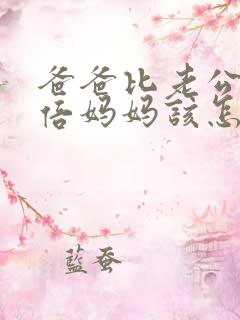 爸爸比老公
倍妈妈該怎
藍蚕